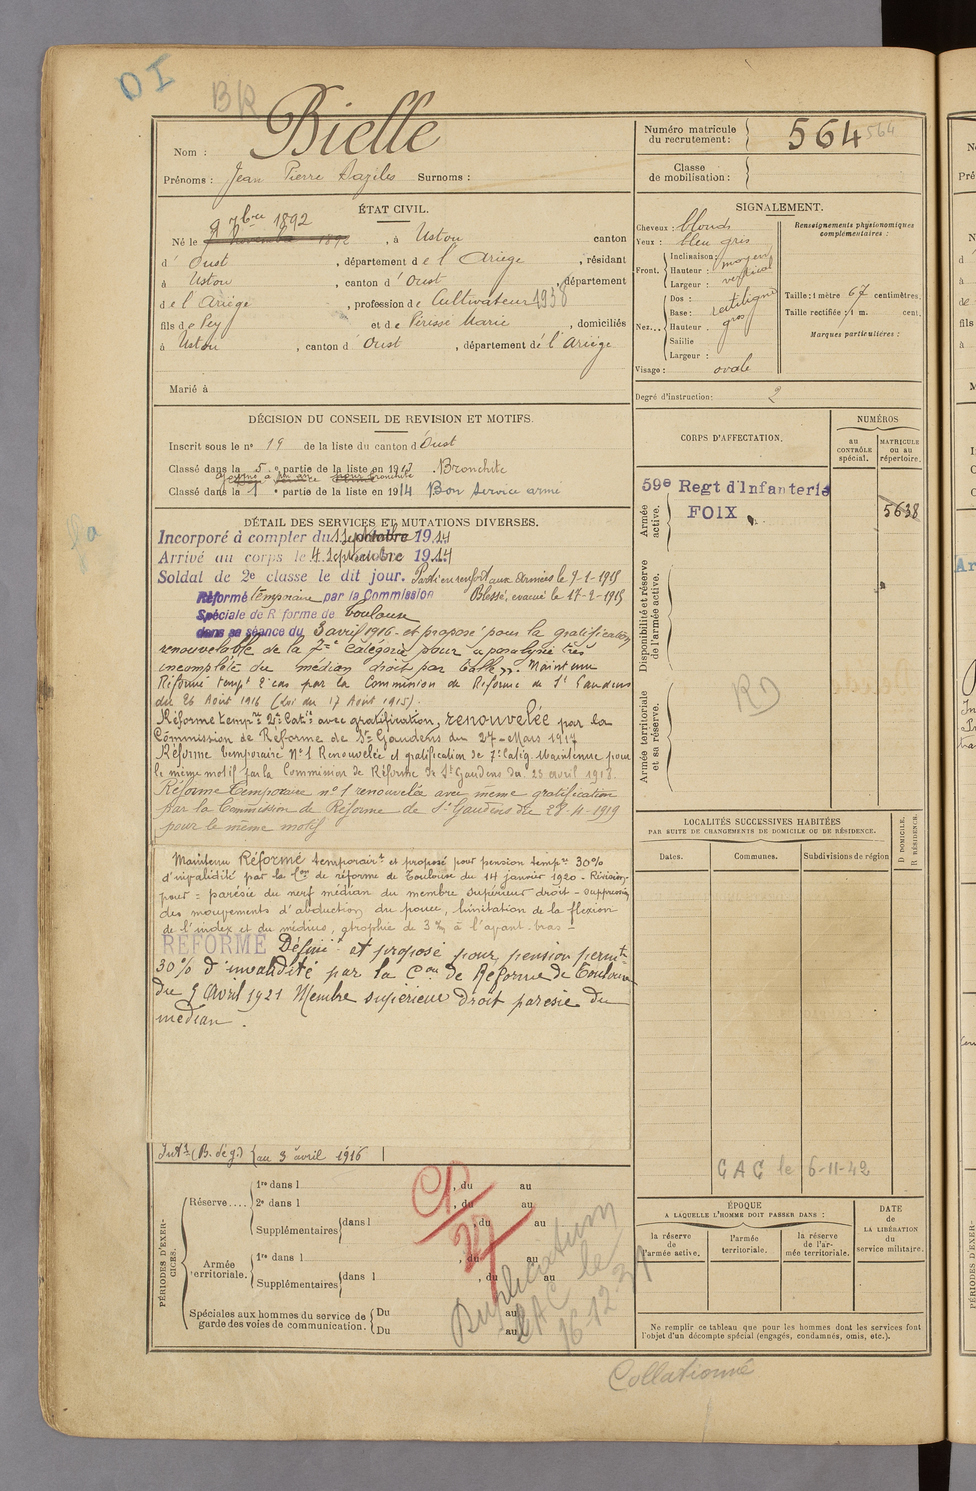 DI
BR
Nom : Bielle
Prénoms : Jean Pierre Bazile Surnoms :
Numéro matricule du recrutement : 564 564
Classe de mobilisation :
ÉTAT CIVIL.
9 7bre 1892
Né le 9 Novembre 1892, à Ustou canton
d' Oust, département de l'Ariège, résidant
à Ustou, canton d'Oust, département
de l'Ariège, profession de Cultivateur 1938
fils de Pey et de Périssé Marie, domiciliés
à Ustou, canton d'Oust, département de l'Ariège
Marié à
SIGNALEMENT.
Cheveux : blonds
Yeux : bleu gris
Front. Inclinaison : moyen
Hauteur : vertical
Largeur :
Nez... Dos : rectiligne
Base :
Hauteur : gros
Saillie
Largeur :
Visage : ovale
Renseignements physionomiques complémentaires :
Taille : 1 mètre 67 centimètres.
Taille rectifiée : 1 m. cent.
Marques particulières :
Degré d'instruction : 2
DÉCISION DU CONSEIL DE REVISION ET MOTIFS.
Inscrit sous le n° 19 de la liste du canton d'Oust
Classé dans la 5e partie de la liste en 1913. Bronchite
Ajourné à un an pour bronchite
Classé dans la 1e partie de la liste en 1914 Bon service armé
CORPS D'AFFECTATION.
NUMÉROS
au CONTRÔLE spécial.
MATRICULE ou au répertoire.
Armée active.
59e Regt d'Infanterie
FOIX
5638
Disponibilité et réserve de l'armée active.
Armée territoriale et sa réserve.
RD
DÉTAIL DES SERVICES ET MUTATIONS DIVERSES.
Incorporé à compter du 1 Sept octobre 1914
Arrivé au corps le 4 Sept octobre 1914
Soldat de 2e classe le dit jour. Parti en renfort aux armées le 9-1-1915
Réformé temporaire par la Commission Blessé, évacué le 17-2-1915
Spéciale de Réforme de Toulouse
dans sa séance du 3 avril 1916 - et proposé pour la gratification
renouvelable de la 7me Catégorie pour "paralysie très
incomplète du médian droit par balle". Maintenu
Réformé tempre 2e cas par la Commission de Réforme de St Gaudens
du 26 Août 1916 (Loi du 17 Août 1915).
Réforme tempre 2e Catie avec gratification, renouvelée par la
Commission de Réforme de St Gaudens du 27-Mars 1917
Réforme temporaire N°1 Renouvelée et gratification de 7e Catég. Maintenue pour
le même motif par la Commission de Réforme de St Gaudens du 23 avril 1918.
Réforme temporaire n° 1 renouvelée avec même gratification
par la Commission de Réforme de St Gaudens du 28-4-1919
pour le même motif
Maintenu Réformé temporairt et proposé pour pension tempre 30%
d'invalidité par la Con de réforme de Toulouse du 14 janvier 1920 - Révision
pour = parésie du nerf médian du membre supérieur droit - suppression
des mouvements d'abduction du pouce, limitation de la flexion
de l'index et du médius, atrophie de 3 % à l'avant-bras -
REFORMÉ Définit et proposé pour pension permte
30% d'invalidité par la Con de Réforme de Toulouse
du 9 Avril 1921 Membre supérieur Droit parésie du
médian.
au 3 avril 1916
LOCALITÉS SUCCESSIVES HABITÉES
PAR SUITE DE CHANGEMENTS DE DOMICILE OU DE RÉSIDENCE.
Dates. Communes. Subdivisions de région
D DOMICILE. R RÉSIDENCE.
CAC le 6-11-42
PÉRIODES D'EXERCICES.
Réserve.... 1re dans l , du au
2e dans l , du au
Supplémentaires dans l , du au
Armée territoriale. 1re dans l , du au
Supplémentaires dans l , du au
Spéciales aux hommes du service de garde des voies de communication. Du au
Du au
Duplicatum
CAC le
16-12-
ÉPOQUE
A LAQUELLE L'HOMME DOIT PASSER DANS :
la réserve de l'armée active.
l'armée territoriale.
la réserve de l'armée territoriale.
DATE de LA LIBÉRATION du service militaire.
Ne remplir ce tableau que pour les hommes dont les services font
l'objet d'un décompte spécial (engagés, condamnés, omis, etc.).
Collationné